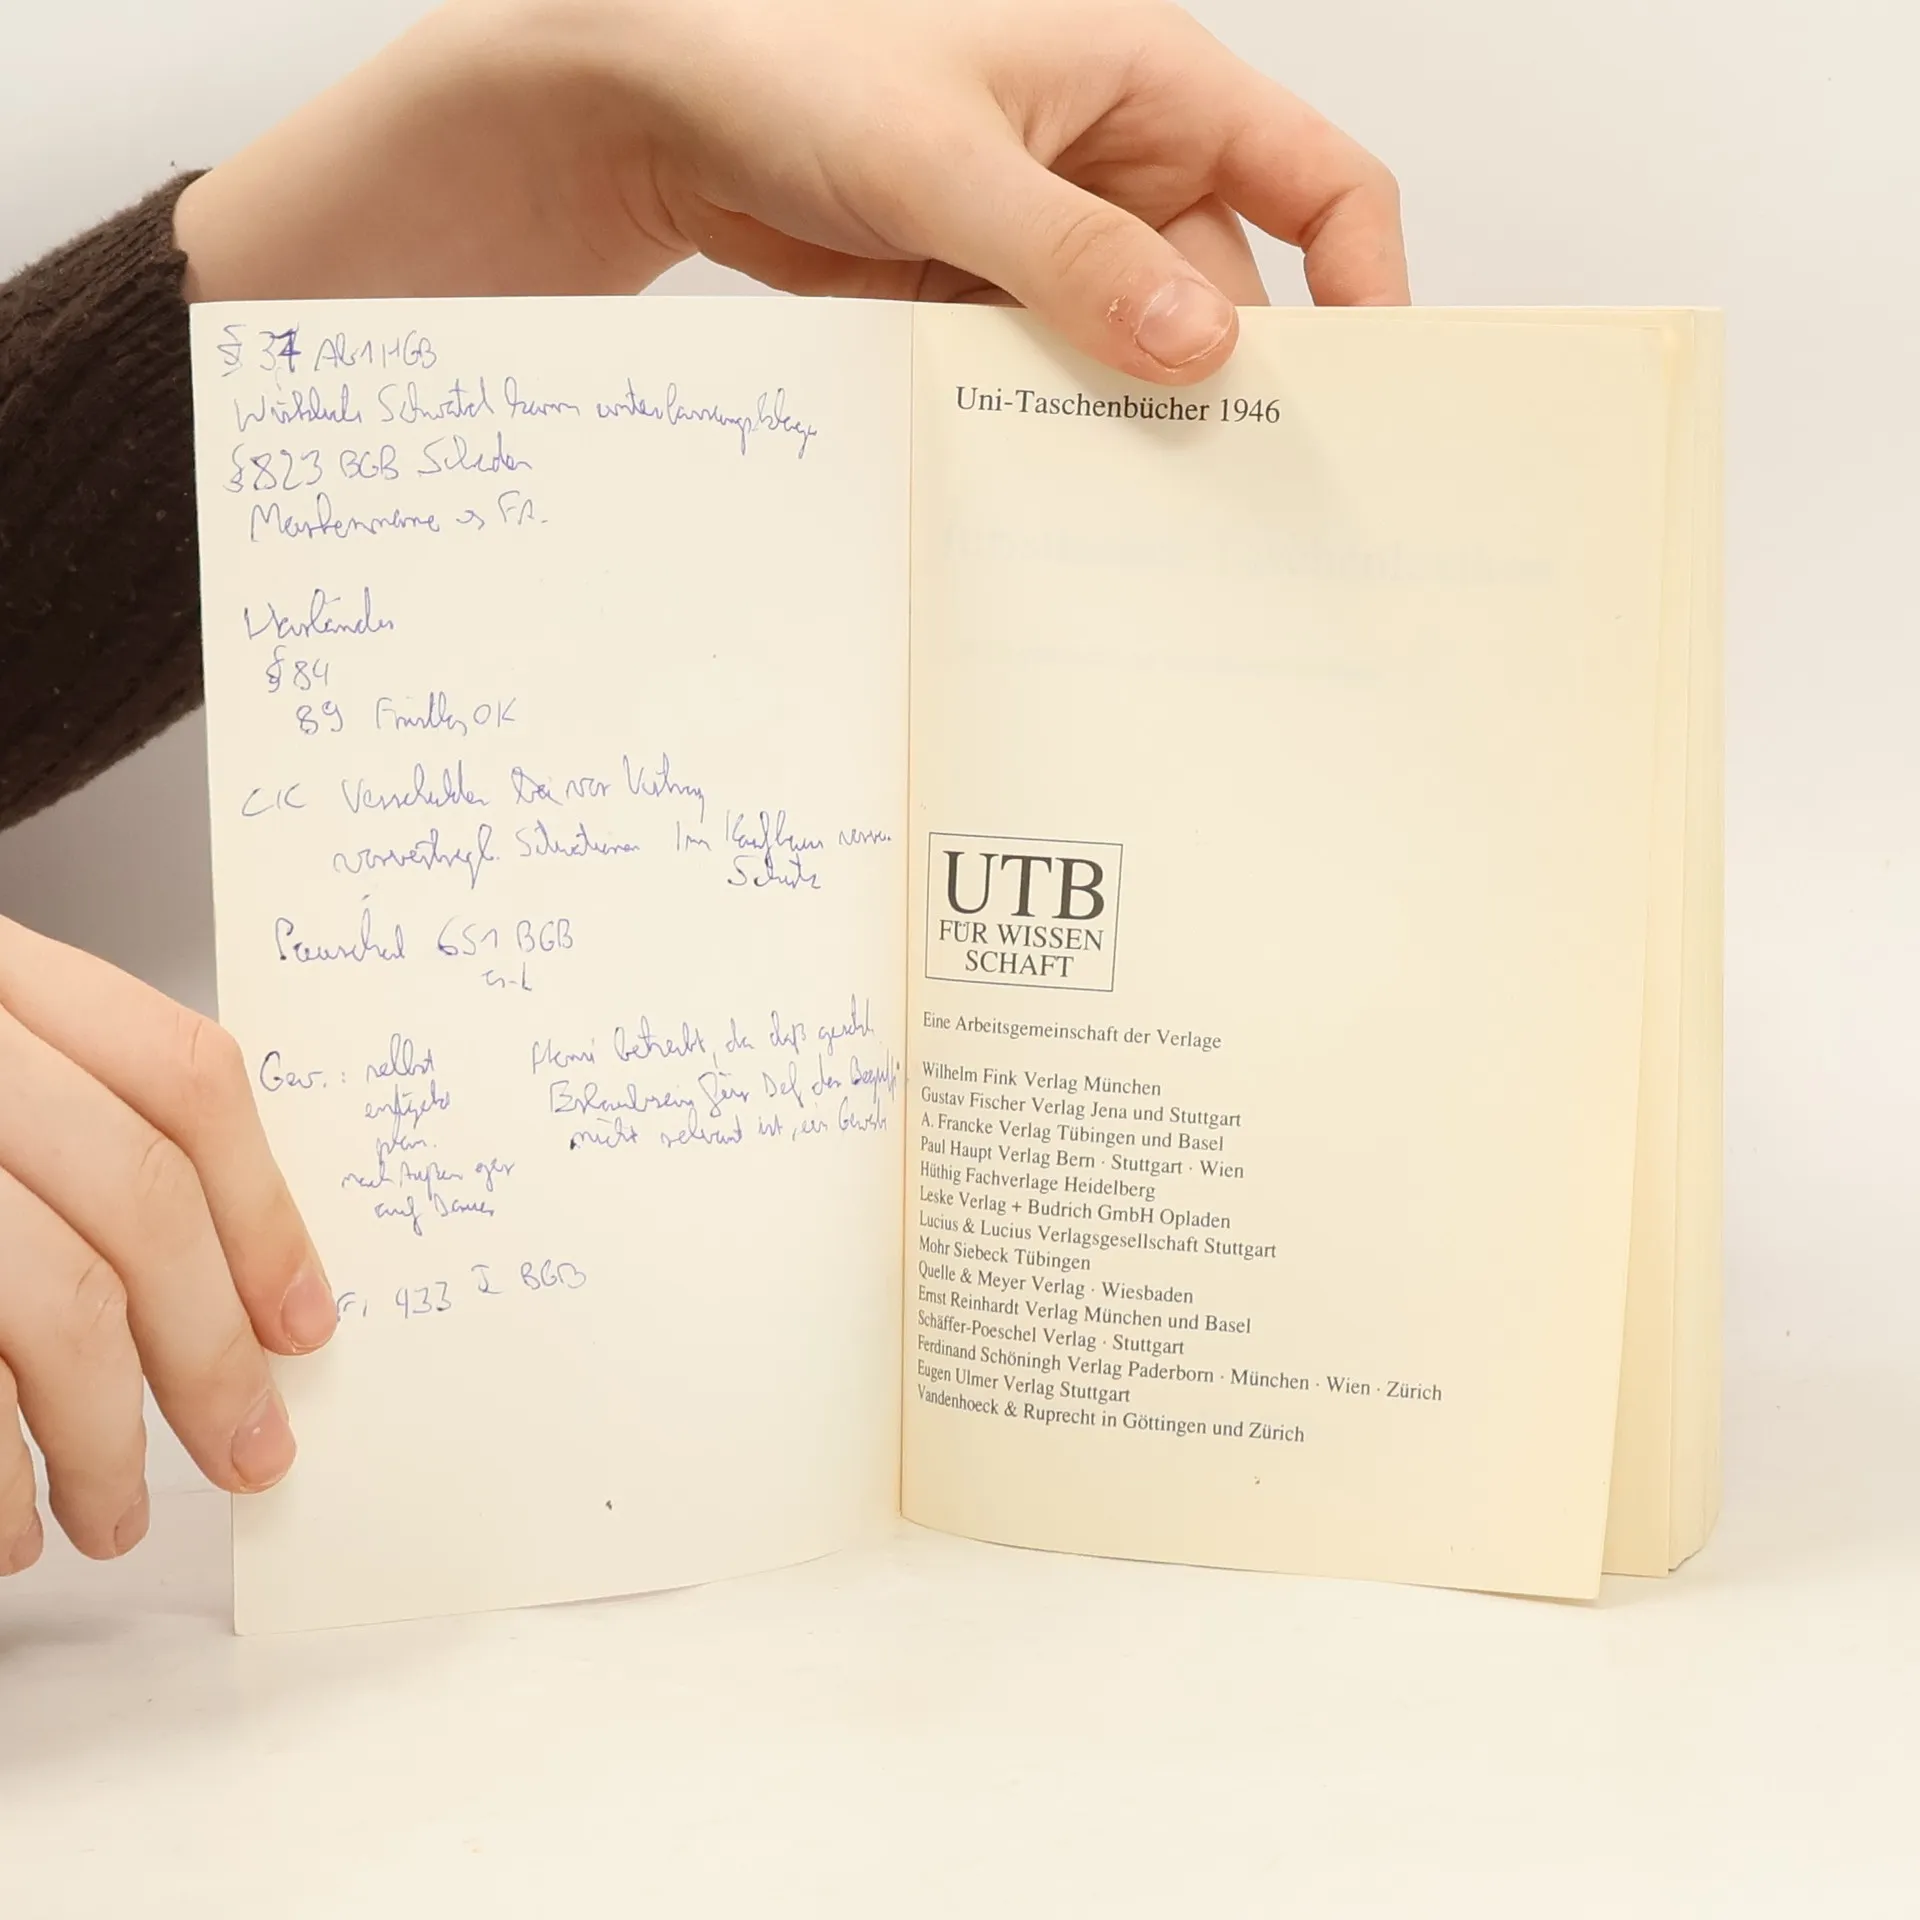 § 37 Abs 1 HGB
kann unterlassungsklage
§ 823 BGB Schaden
Markenname
§ 84
89 Fristlos OK
CIC Verschulden bei vor Vertrag
vorvertragl. Situationen Im Kaufhaus
Schutz
Pauschal 651 BGB
a-L
Gew.: selbst
entgeltl
plan.
nach Außen ger
auf Dauer
betreibt, da daß
Erlaubtsein fürs Def des
nicht relevant ist, ein Gewerbe
433 I BGB
Uni-Taschenbücher 1946
UTB
FÜR WISSEN
SCHAFT
Eine Arbeitsgemeinschaft der Verlage
Wilhelm Fink Verlag München
Gustav Fischer Verlag Jena und Stuttgart
A. Francke Verlag Tübingen und Basel
Paul Haupt Verlag Bern · Stuttgart · Wien
Hüthig Fachverlage Heidelberg
Leske Verlag + Budrich GmbH Opladen
Lucius & Lucius Verlagsgesellschaft Stuttgart
Mohr Siebeck Tübingen
Quelle & Meyer Verlag · Wiesbaden
Ernst Reinhardt Verlag München und Basel
Schäffer-Poeschel Verlag · Stuttgart
Ferdinand Schöningh Verlag Paderborn · München · Wien · Zürich
Eugen Ulmer Verlag Stuttgart
Vandenhoeck & Ruprecht in Göttingen und Zürich